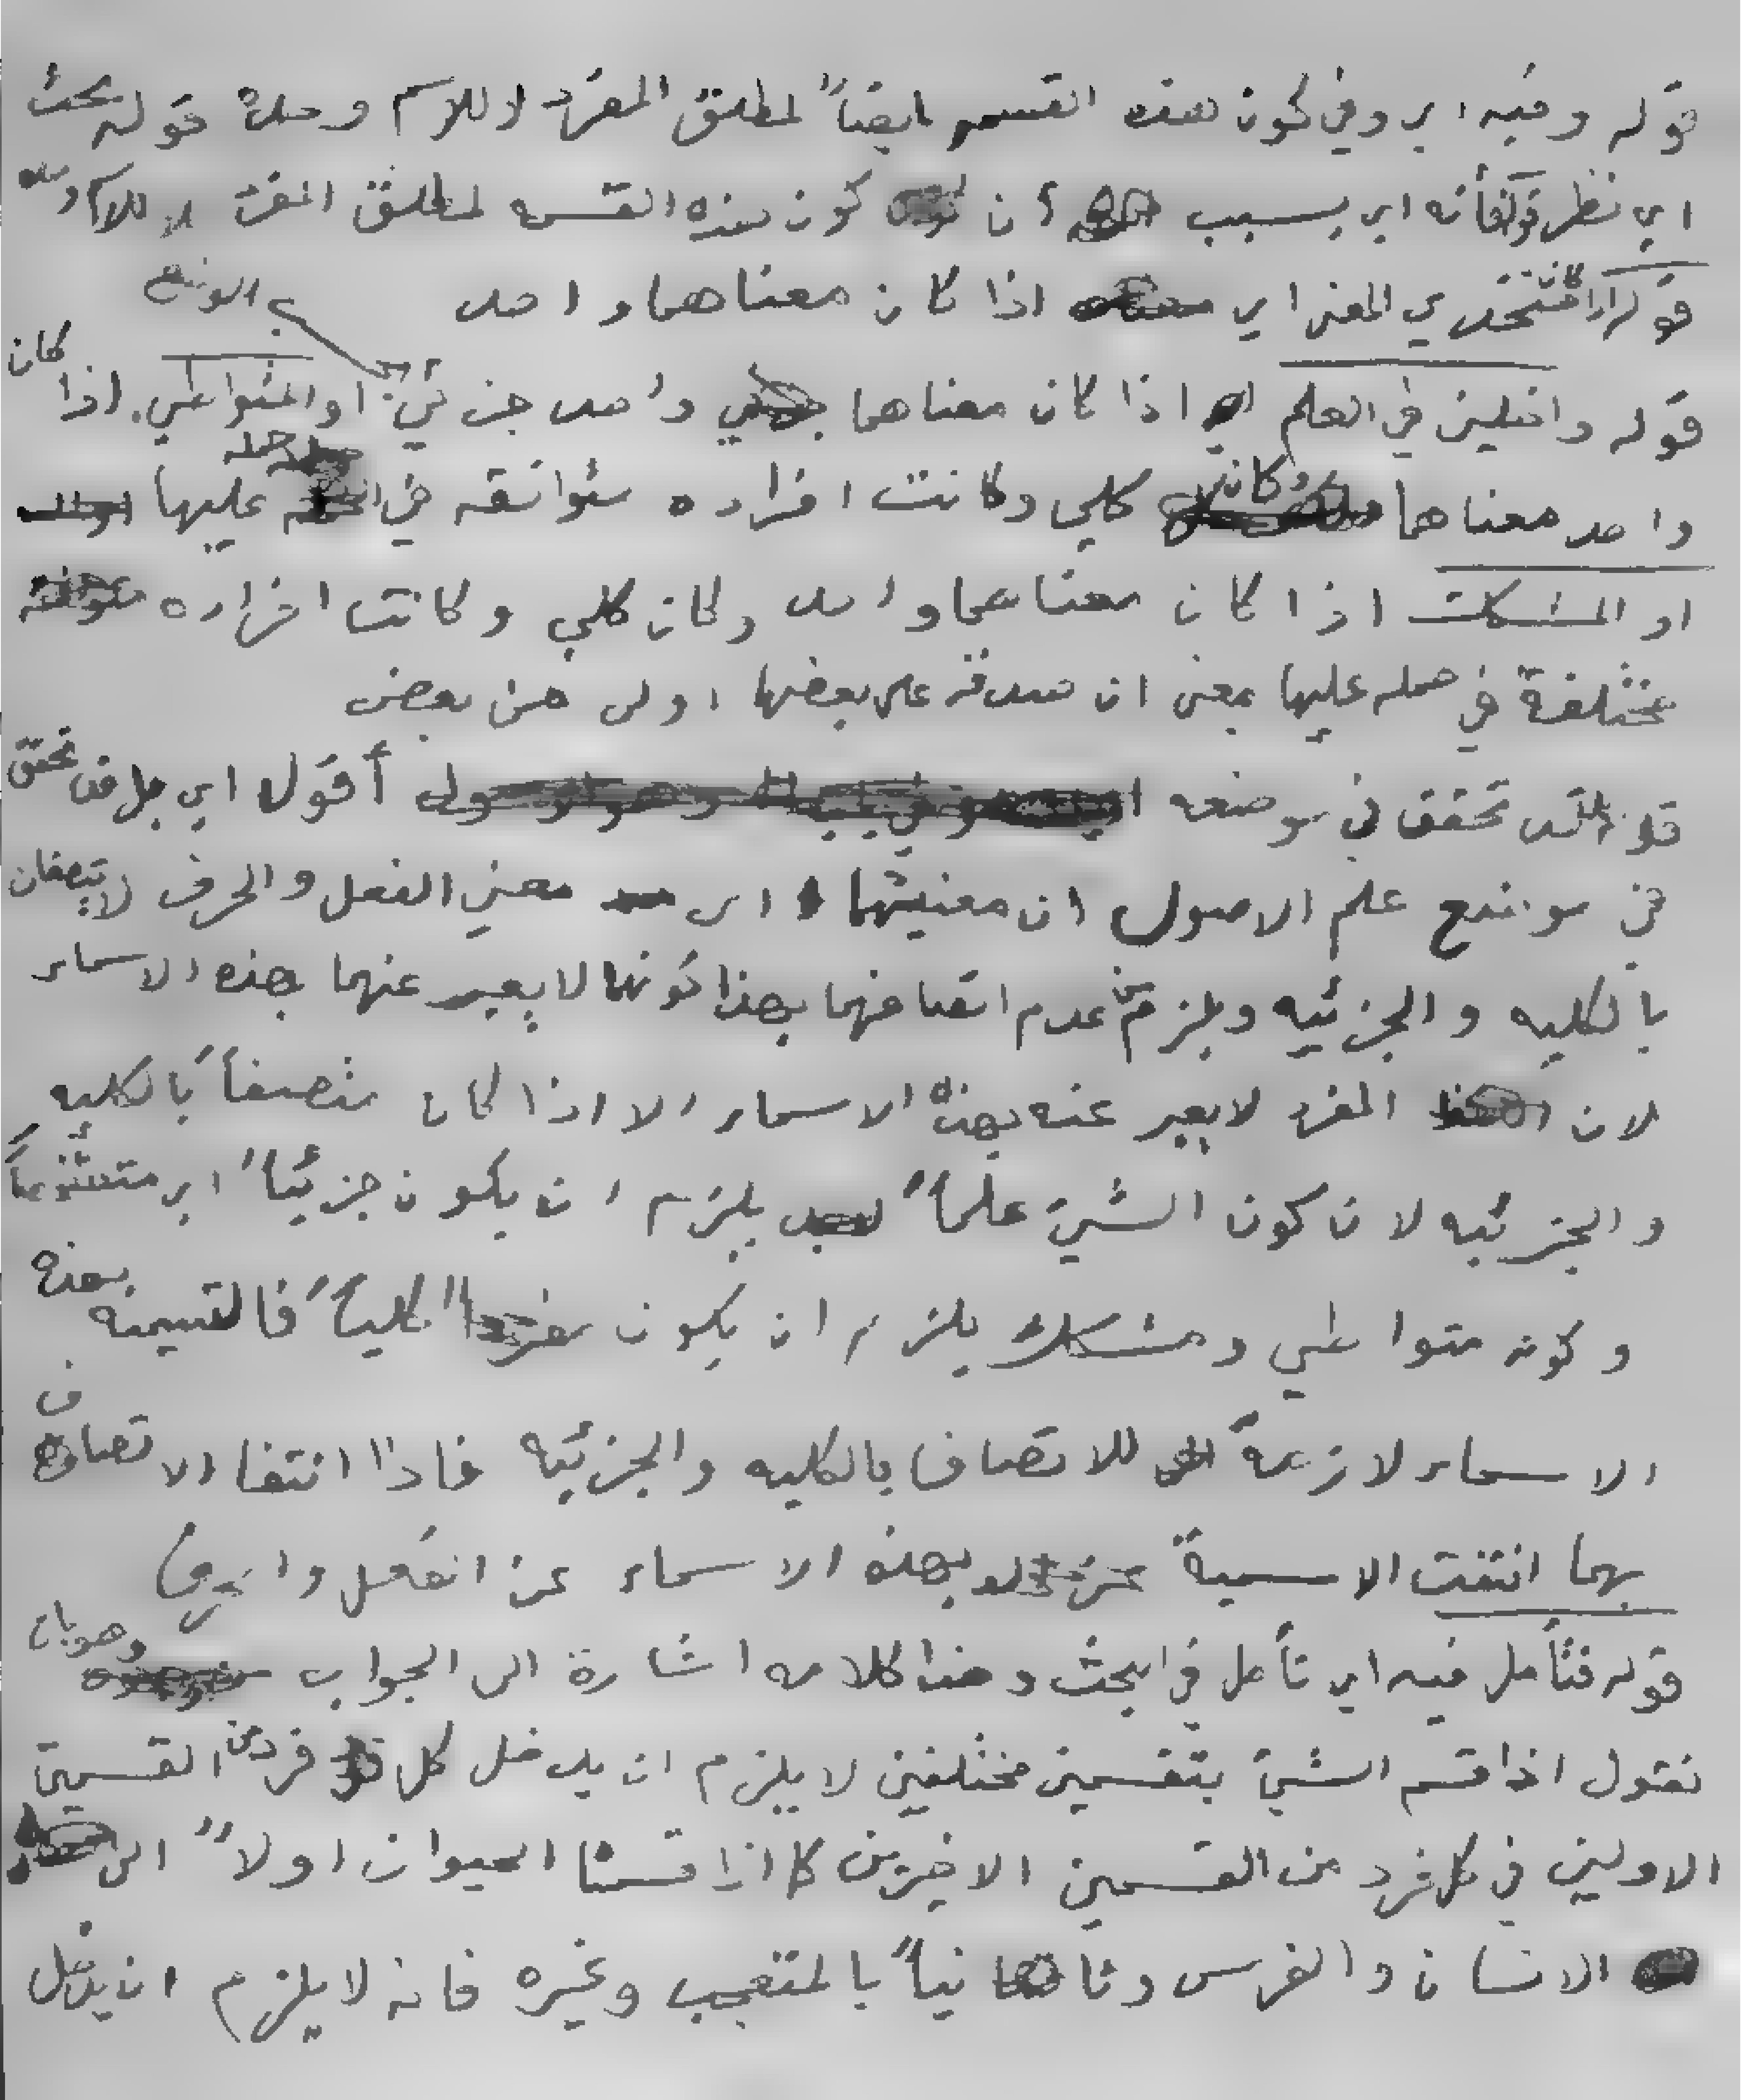 قوله وفيه اي وفي كون هذه القسمه ايضاً لمطلق المفرد لا للاسم وحده قوله بحث
اي نظر قوله فأنه اي بسبب ان كون هذه القسمه لمطلق المفرد لا للاسم وحده
قوله اذا كانا متحدي المعنى اي اذا كان معناهما واحد
قوله داخلين في العلم اي اذا كان معناهما واحد جزئي بالوضع او المتواطي. اذا كان
واحد معناهما وكان كلي وكانت افراده متوافقه في حمله عليها
او المشكك اذا كان معناهما واحد وكان كلي وكانت افراده
مختلفة في حمله عليها بمعنى ان صدقه على بعضها اولى من بعض
قوله قد تحقق في موضعه أقول اي بل قد تحقق
في موضع علم الاصول ان معنيهما اي معنى الفعل والحرف لا يتصفان
بالكليه والجزئيه ويلزم من عدم اتصافهما بهذا كونهما لا يعبر عنهما بهذه الاسماء
لان المفرد لا يعبر عنه بهذه الاسماء الا اذا كان متصفاً بالكليه
والجزئيه لان كون الشيئ علماً يلزم ان يكون جزئياً اي متشخصاً
وكونه متواطي ومشكك يلزم ان يكون كلياً فالتسميه بهذه
الاسماء لازمة للاتصاف بالكليه والجزئيه فاذا انتفا الاتصاف
بهما انتفت الاسمية بهذه الاسماء عن الفعل والحرف
قوله فتأمل فيه اي تأمل في البحث وهذا كلامه اشارة الى الجواب وهو بان
نقول اذا قسم الشيئ بتقسيمين مختلفين لا يلزم ان يدخل كل فرد من القسمين
الاولين في كل فرد من القسمين الاخيرين كما اذا قسمنا الحيوان اولاً الى
الانسان والفرس وثانياً بالمتعجب وغيره فانه لا يلزم ان يدخل